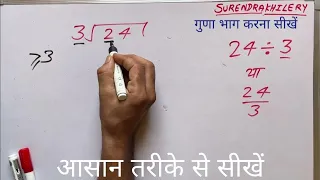 SURENDRAKHILERY
गुणा भाग करना सीखें
3√24
24 ÷ 3
≥3
या
24
3
आसान तरीके से सीखें